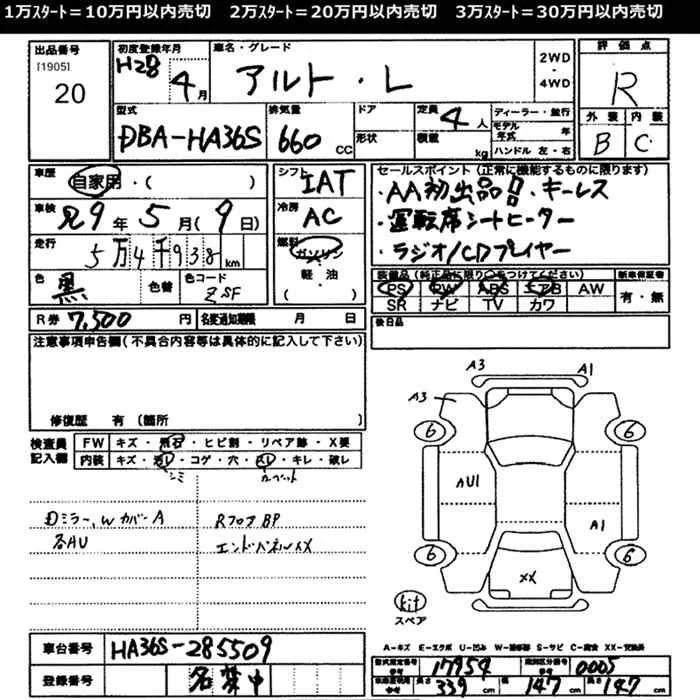 1万ｽﾀｰﾄ＝10万円以内売切　2万ｽﾀｰﾄ＝20万円以内売切　3万ｽﾀｰﾄ＝30万円以内売切
出品番号 [1905] 20
初度登録年月 H28 4月
車名・グレード アルト・L
2WD・4WD
評価点 R
外装 B 内装 C
型式 DBA-HA36S
排気量 660cc
ドア 形状
定員 4人 積載 kg
ディーラー・並行 モデル年式 年 ハンドル 左・右
車歴 自家用・( )
車検 R9年5月(9日)
走行 5万4千938km
色 黒 色替 色コード ZSF
シフト IAT
冷房 AC
燃料 ガソリン 軽・油 ( )
セールスポイント (正常に機能するものに限ります)
・AA初出品号・キーレス
・運転席シートヒーター
・ラジオ/CDプレイヤー
装備品(純正品に限り○をつけてください) 新車保証書
PS PW ABS エアB AW 有・無
SR ナビ TV カワ
R券 7,500円 名変通知期限 月 日
後日品
注意事項申告欄(不具合内容等は具体的に記入して下さい)
修復歴 有(箇所 )
検査員記入欄
FW キズ・飛石・ヒビ割・リペア跡・X要
内装 キズ・汚レ・コゲ・穴・スレ・キレ・破レ
シミ カーペット
Dミラー、Wカバー A RフロアBP
各AU エンドパネルXX
A3 A1
A3 6 6
AU1 A1
6 6
XX
kit スペア
A-キズ E-エクボ U-凹ミ W-補修跡 S-サビ C-腐食 XX-交換済
車台番号 HA36S-285509
登録番号 名変中
型式指定番号 参考 17954 類別区分番号 参考 0005
長さ 339cm 幅 147cm 高さ 147cm